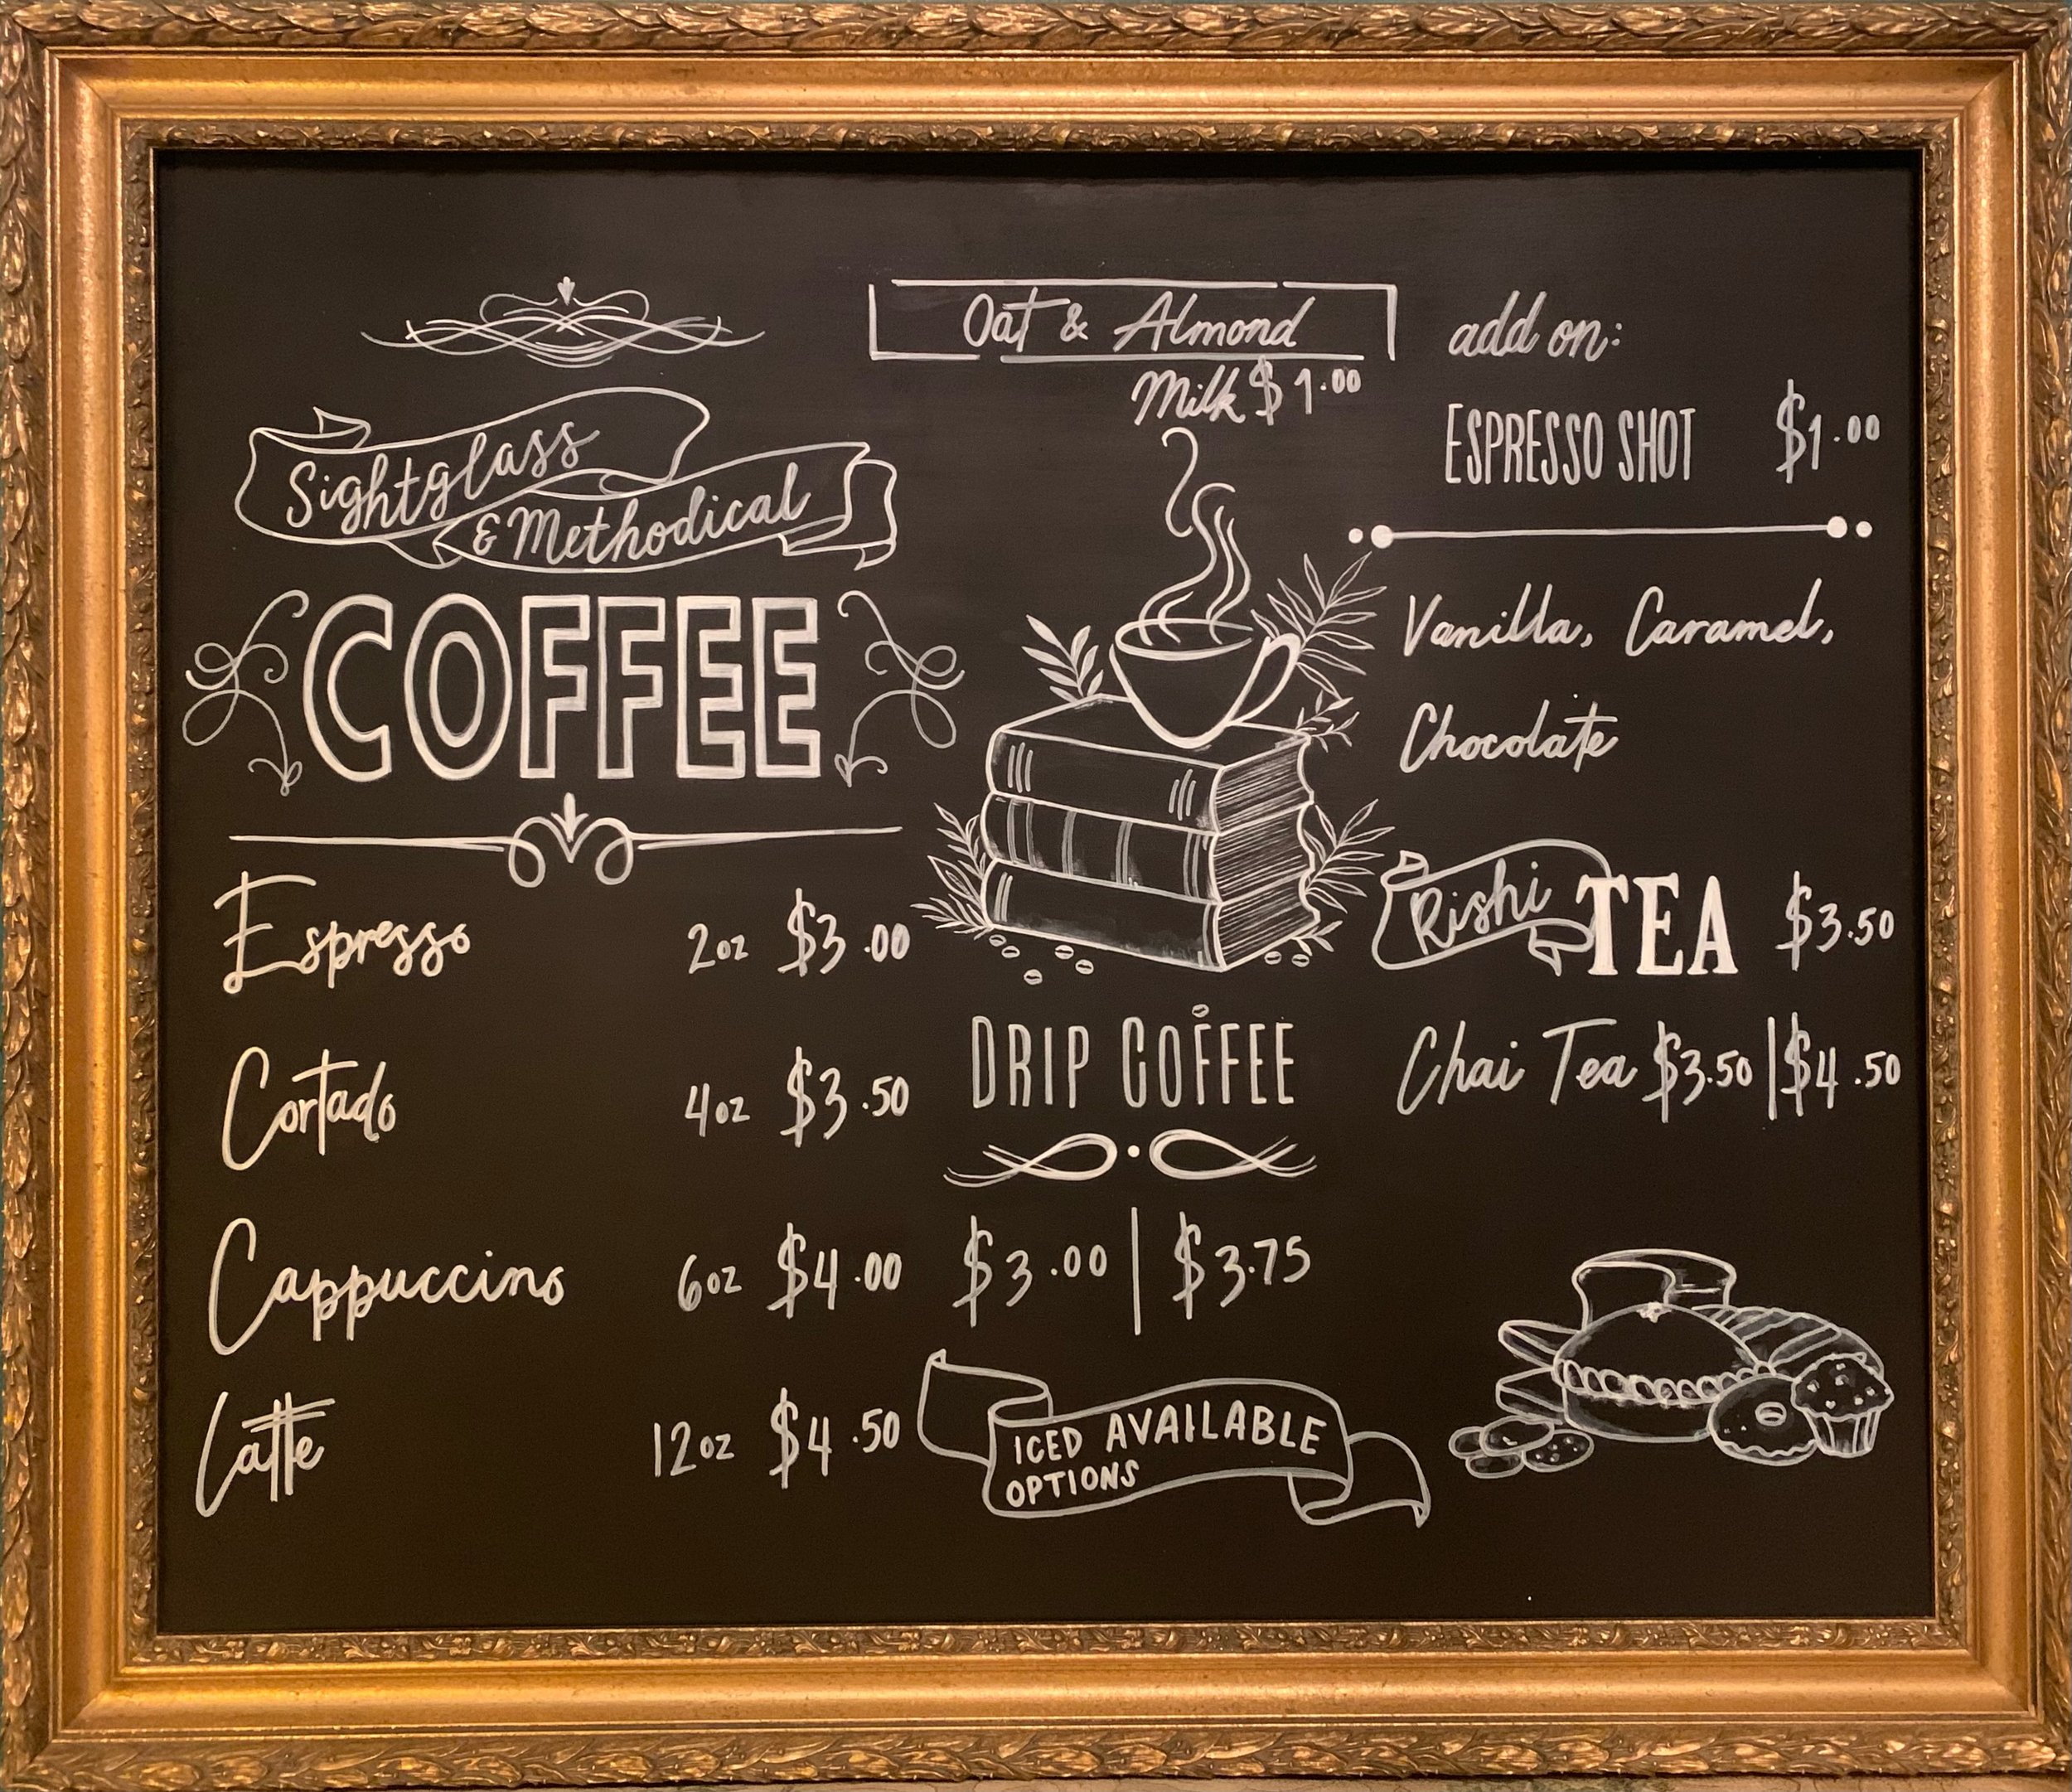 Sightglass
& Methodical
COFFEE
Espresso 2oz $3.00
Cortado 4oz $3.50
Cappuccino 6oz $4.00
Latte 12oz $4.50
Oat & Almond
Milk $1.00
DRIP COFFEE
$3.00 | $3.75
ICED AVAILABLE
OPTIONS
add on:
ESPRESSO SHOT $1.00
Vanilla, Caramel,
Chocolate
Rishi TEA $3.50
Chai Tea $3.50 | $4.50